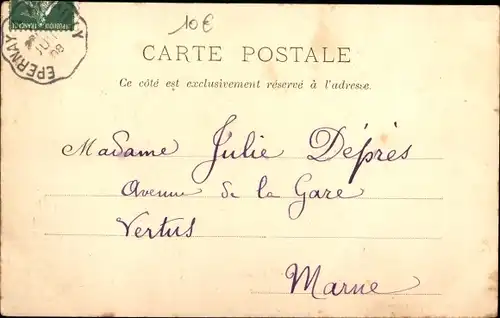 10€
EPERNAY
JUIN
08
CARTE POSTALE
Ce côté est exclusivement réservé à l'adresse.
Madame Julie Déprès
Avenue de la Gare
Vertus
Marne